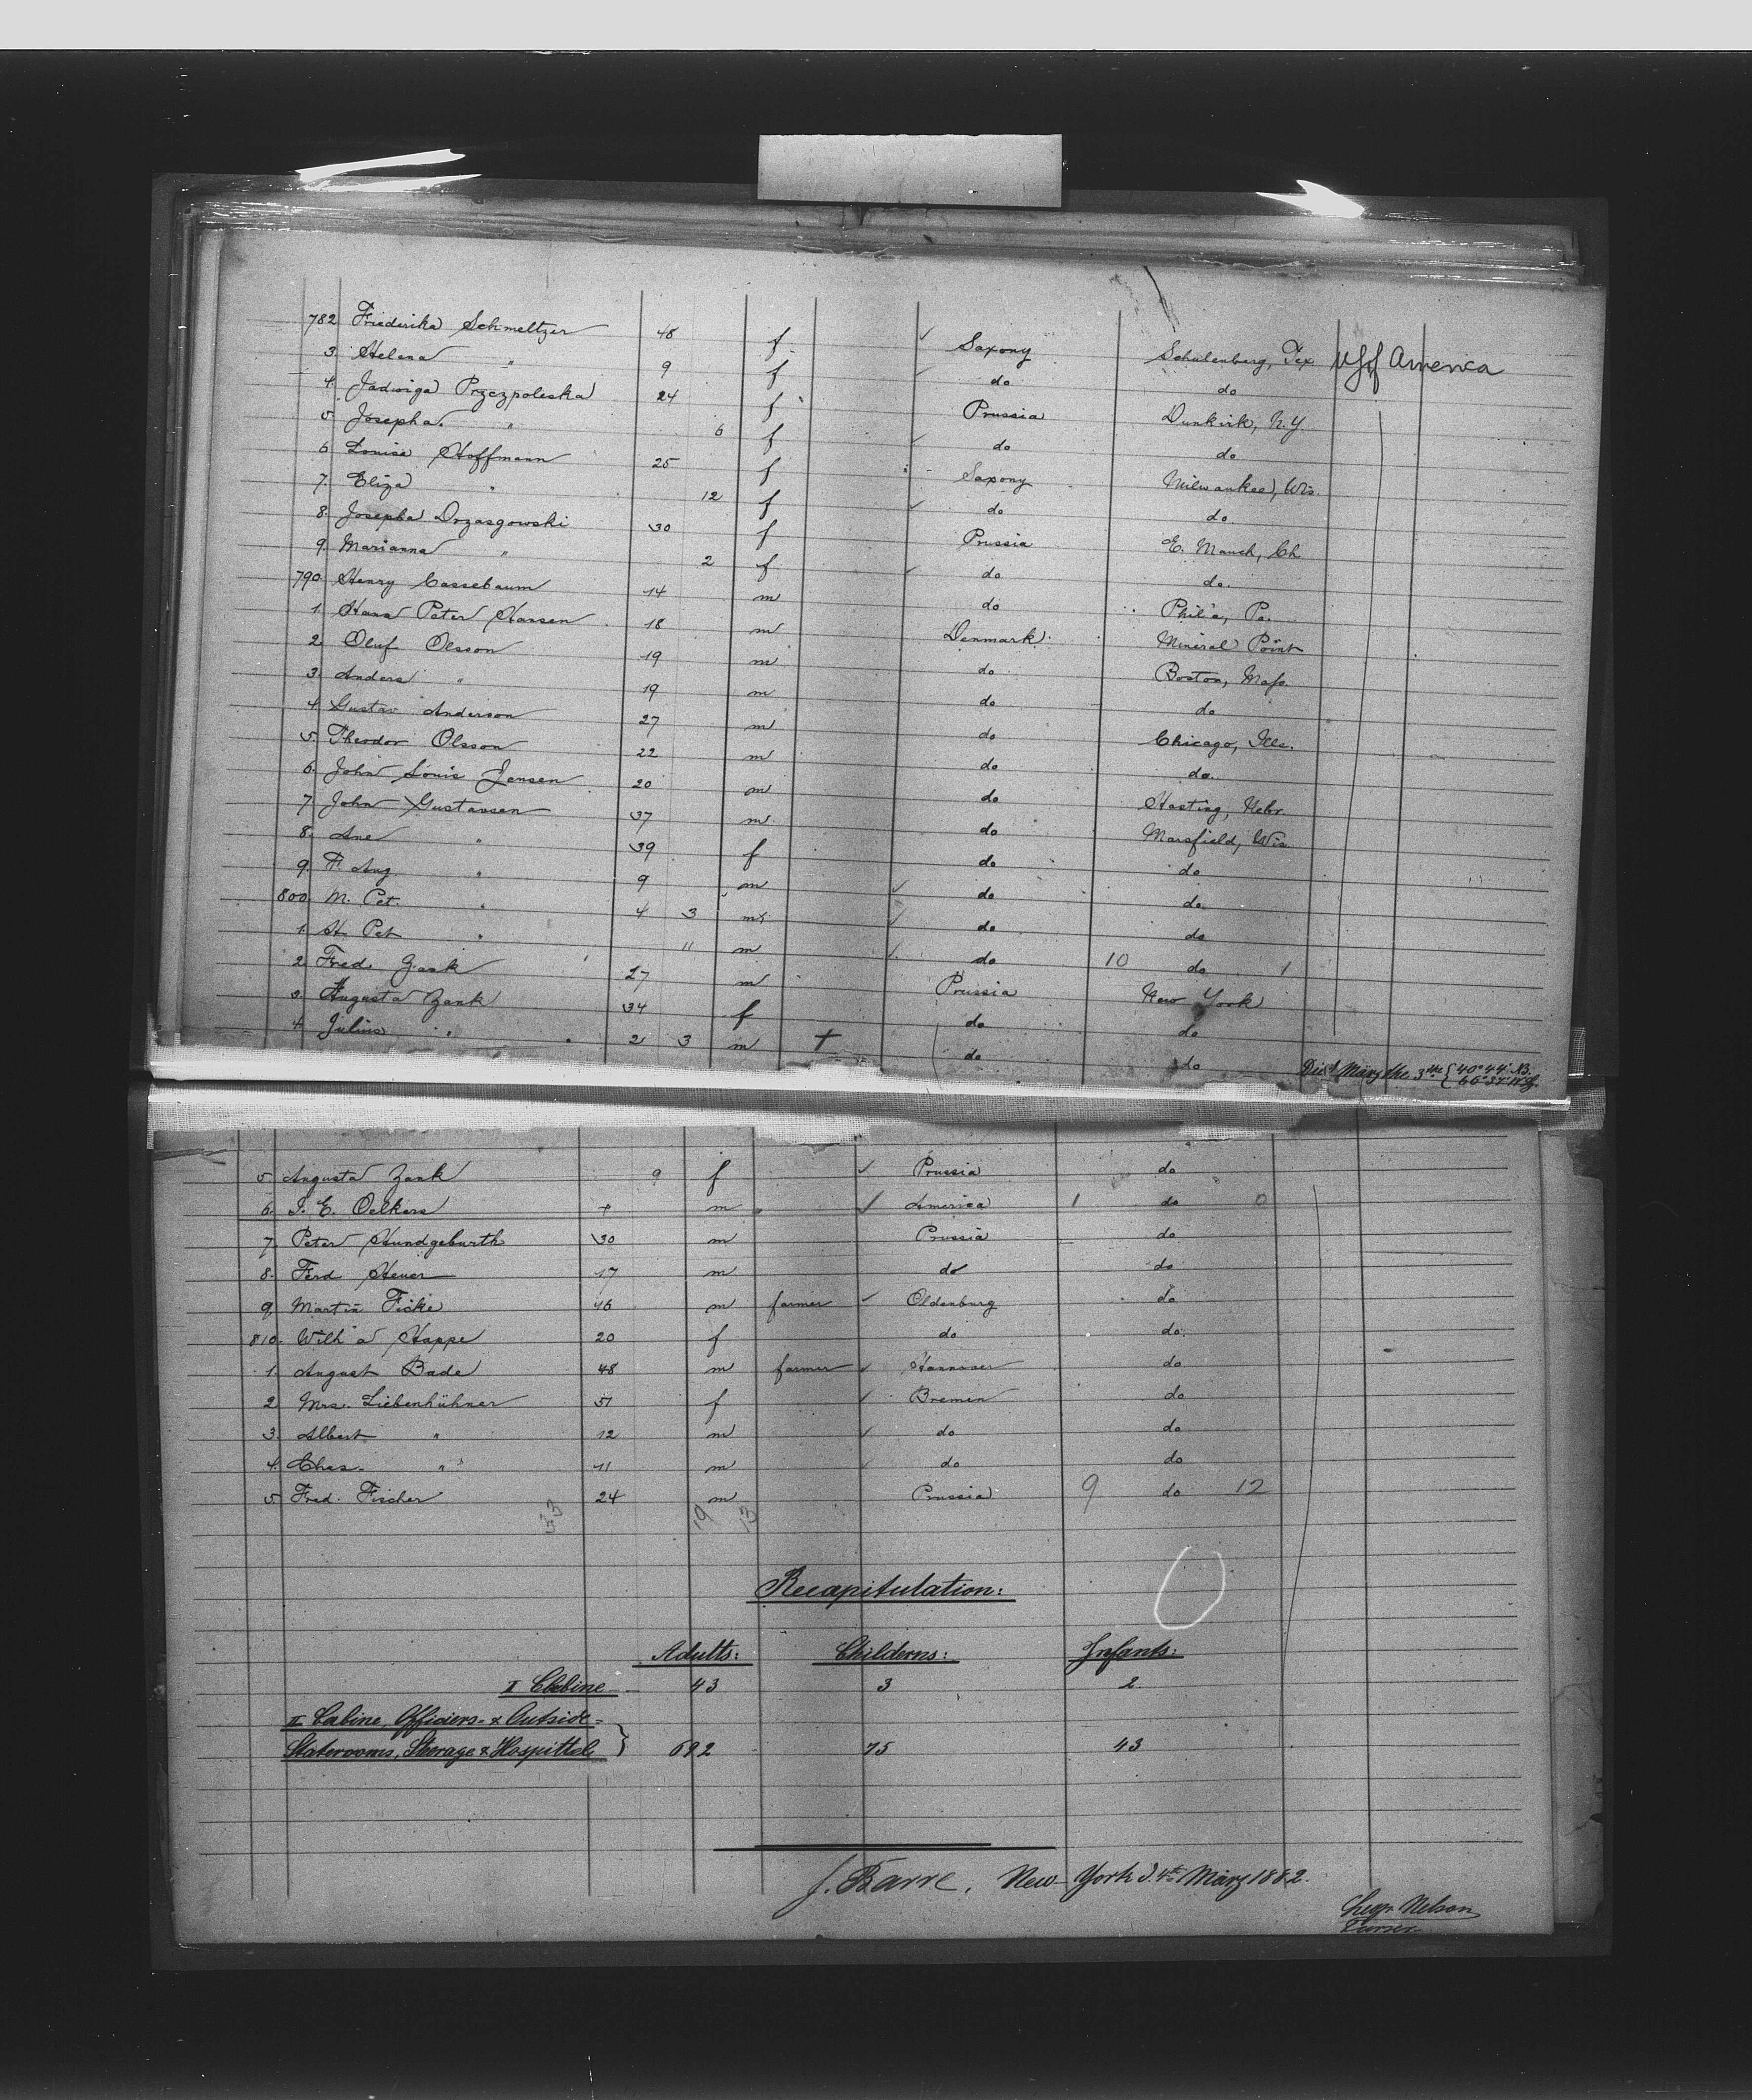 782 Friederika Schmeltzer 48 f Saxony Schulenberg, Tex USf America
3. Helena " 9 f do do
4. Jadwiga Przezpoleska 24 f Prussia Dunkirk, N.Y.
5. Josepha " 6 f do do
6. Louise Hoffmann 25 f Saxony Milwaukee, Wis.
7. Eliza " 12 f do do
8. Josepha Drzasgowski 30 f Prussia E. Mauch, Ch
9. Marianna " 2 f do do.
790. Henry Cassebaum 14 m do Phil'a, Pa.
1. Hans Peter Hansen 18 m Denmark Mineral Point
2. Oluf Olsson 19 m do Boston, Mass.
3. Anders " 19 m do do
4. Gustav Anderson 27 m do Chicago, Ills.
5. Theodor Olsson 22 m do do.
6. John Louis Jensen 20 m do Hasting, Nebr.
7. John Gustavsen 37 m do Marsfield, Wis.
8. Ane " 39 f do do
9. F. Aug. " 9 m do do.
800. M. Pet. " 4 3 m do do
1. H. Pet " 11 m do 10 do 1
2. Fred. Zank 27 m Prussia New York
3. Augusta Zank 34 f do do
4. Julius " 2 3 m + do do Died März the 3the { 40° 44' NB. 66° 37' W Lg.
5. Augusta Zank 9 f Prussia do
6. J. E. Oelkers + m America 1 do 0
7. Peter Hundgeburth 30 m Prussia do
8. Ferd Heuer 17 m do do
9. Martin Ficke 46 m farmer Oldenburg do
810. Wilh'a Happe 20 f do do.
1. August Bade 48 m farmer Hannover do
2. Mrs. Liebenhühner 51 f Bremen do
3. Albert " 12 m do do
4. Chas. " 11 m do do
5. Fred. Fischer 24 m Prussia 9 do 12
33 19 13
Recapitulation:
Adults: Childerns: Infants:
I Cabine 43 3 2
II Cabine, Officiers- & Outside-
Staterooms, Sterage & Hospittel } 692 75 43
J. Barre. New-York d. 4th März 1882.
Legr. Nelson
Purser